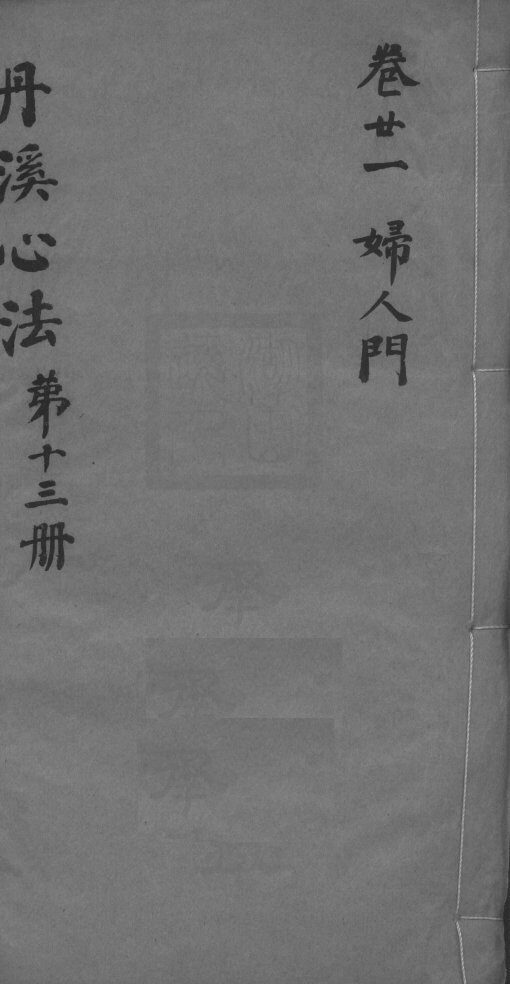 卷廿一 婦人門
丹溪心法 第十三册